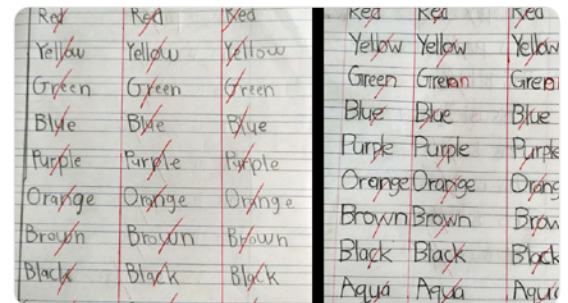 Red Red Red
Yellow Yellow Yellow
Green Green Green
Blue Blue Blue
Purple Purple Purple
Orange Orange Orange
Brown Brown Brown
Black Black Black
Red Red Red
Yellow Yellow Yellow
Green Green Green
Blue Blue Blue
Purple Purple Purple
Orange Orange Orang
Brown Brown Brow
Black Black Black
Aqua Aqua Aqua